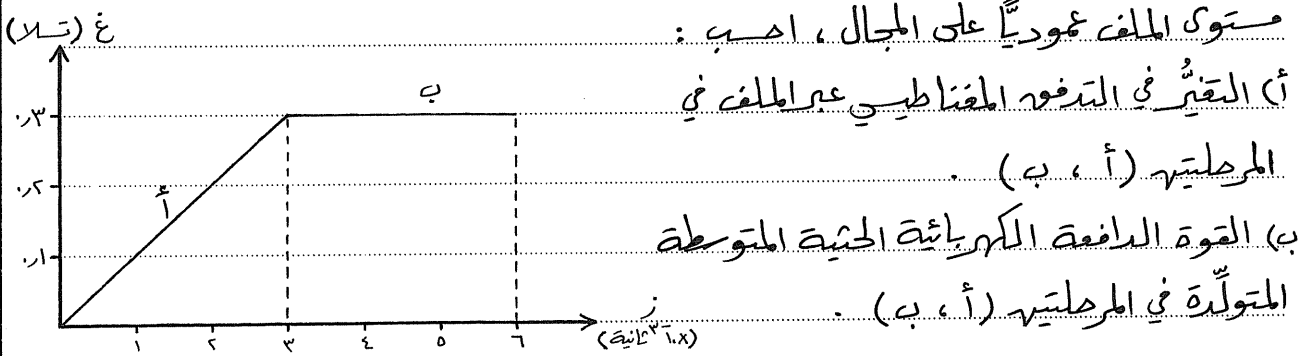 مستوى الملف عموديًّا على المجال ، احسب :
أ) التغيُّر في التدفق المغناطيسي عبر الملف في
المرحلتين (أ ، ب) .
ب) القوة الدافعة الكهربائية الحثية المتوسطة
المتولِّدة في المرحلتين (أ ، ب) .
غ (تسلا)
ب
٠,٣
٠,٢
أ
٠,١
ز
١ ٢ ٣ ٤ ٥ ٦
(×١٠⁻³ ثانية)